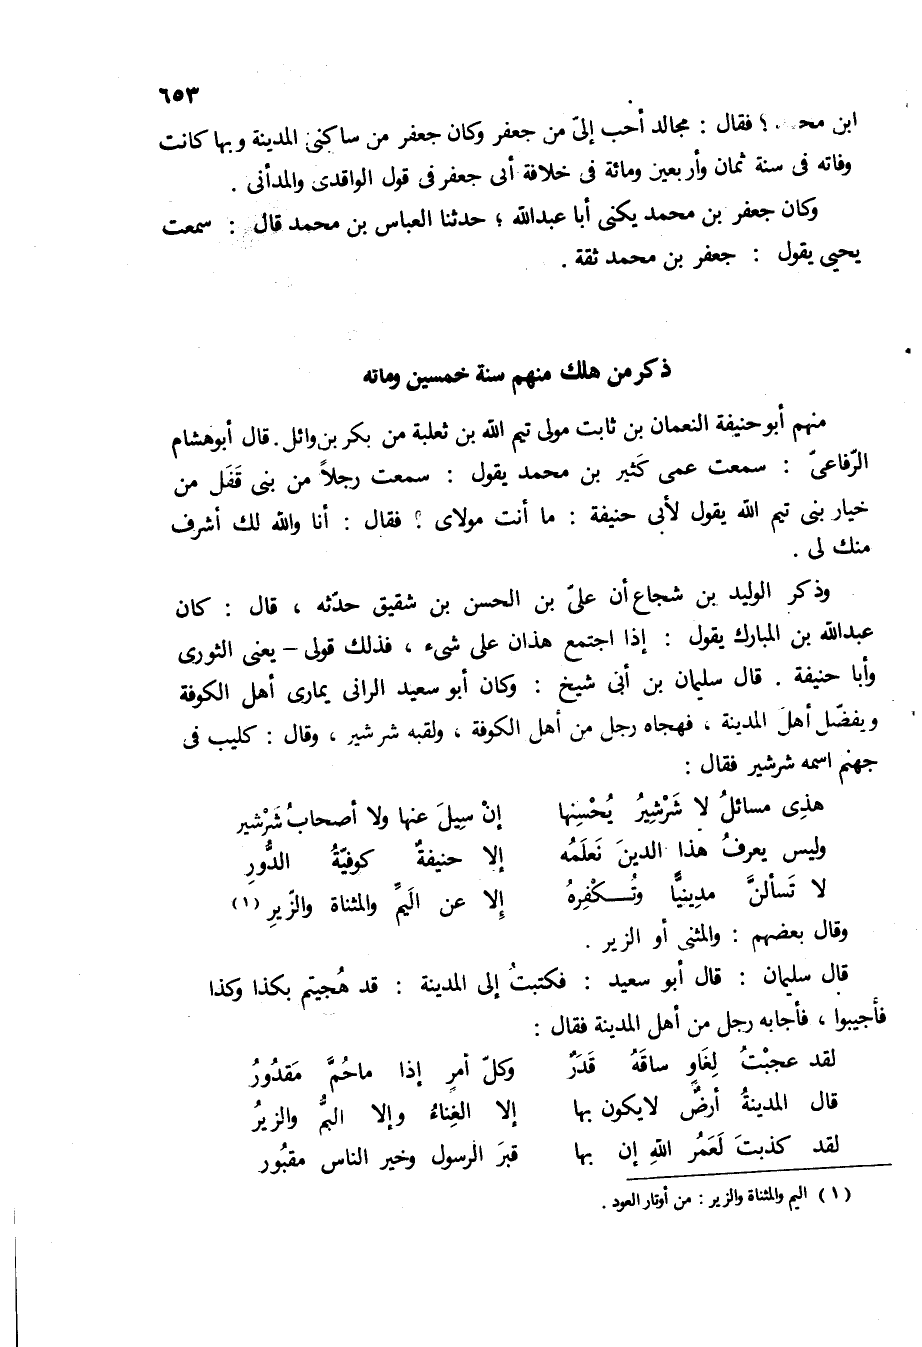 ٦٥٣
ابن محـ ؟ فقال : مجالد أحب إلىّ من جعفر وكان جعفر من ساكنى المدينة وبها كانت
وفاته فى سنة ثمان وأربعين ومائة فى خلافة أبى جعفر فى قول الواقدى والمدأنى .
وكان جعفر بن محمد يكنى أبا عبدالله ؛ حدثنا العباس بن محمد قال : سمعت
يحيى يقول : جعفر بن محمد ثقة .
ذكر من هلك منهم سنة خمسين ومائه
منهم أبو حنيفة النعمان بن ثابت مولى تيم الله بن ثعلبة من بكر بن وائل . قال أبوهشام
الرّفاعىّ : سمعت عمى كَثير بن محمد يقول : سمعت رجلاً من بنى قَفَل من
خيار بنى تيم الله يقول لأبى حنيفة : ما أنت مولاى ؟ فقال : أنا والله لك أشرف
منك لى .
وذكر الوليد بن شجاع أن علىّ بن الحسن بن شقيق حدّثه ، قال : كان
عبدالله بن المبارك يقول : إذا اجتمع هذان على شىء ، فذلك قولى – يعنى الثورى
وأبا حنيفة . قال سليمان بن أبى شيخ : وكان أبو سعيد الرانى يمارى أهل الكوفة
ويفضّل أهلَ المدينة ، فهجاه رجل من أهل الكوفة ، ولقبه شرشير ، وقال : كليب فى
جهنم اسمه شرشير فقال :
هذِى مسائلُ لا شَرْشِيرُ يُحْسِنها إنْ سِيلَ عنها ولا أصحابُ شَرْشير
وليس يعرفُ هذا الدينَ نَعلَمُه إلا حنيفةٌ كوفيّةُ الدُّورِ
لا تَسألنَّ مدِينيًّا وتُـكْفِرهُ إلا عن اليَمِّ والمثناة والزّيرِ (١)
وقال بعضهم : والمثنى أو الزير .
قال سليمان : قال أبو سعيد : فكتبتُ إلى المدينة : قد هُجيتم بكذا وكذا
فأجيبوا ، فأجابه رجل من أهل المدينة فقال :
لقد عجبْتُ لِغَاوٍ ساقَهُ قَدَرٌ وكلّ أمرٍ إذا ماحُمَّ مَقدُورُ
قال المدينةُ أرضٌ لايكون بها إلا الغِناءُ وإلا اليمُّ والزيرُ
لقد كذبتَ لَعَمرُ اللهِ إن بها قبرَ الرسول وخير الناس مقبُور
(١) اليم والمثناة والزير : من أوتار العود .